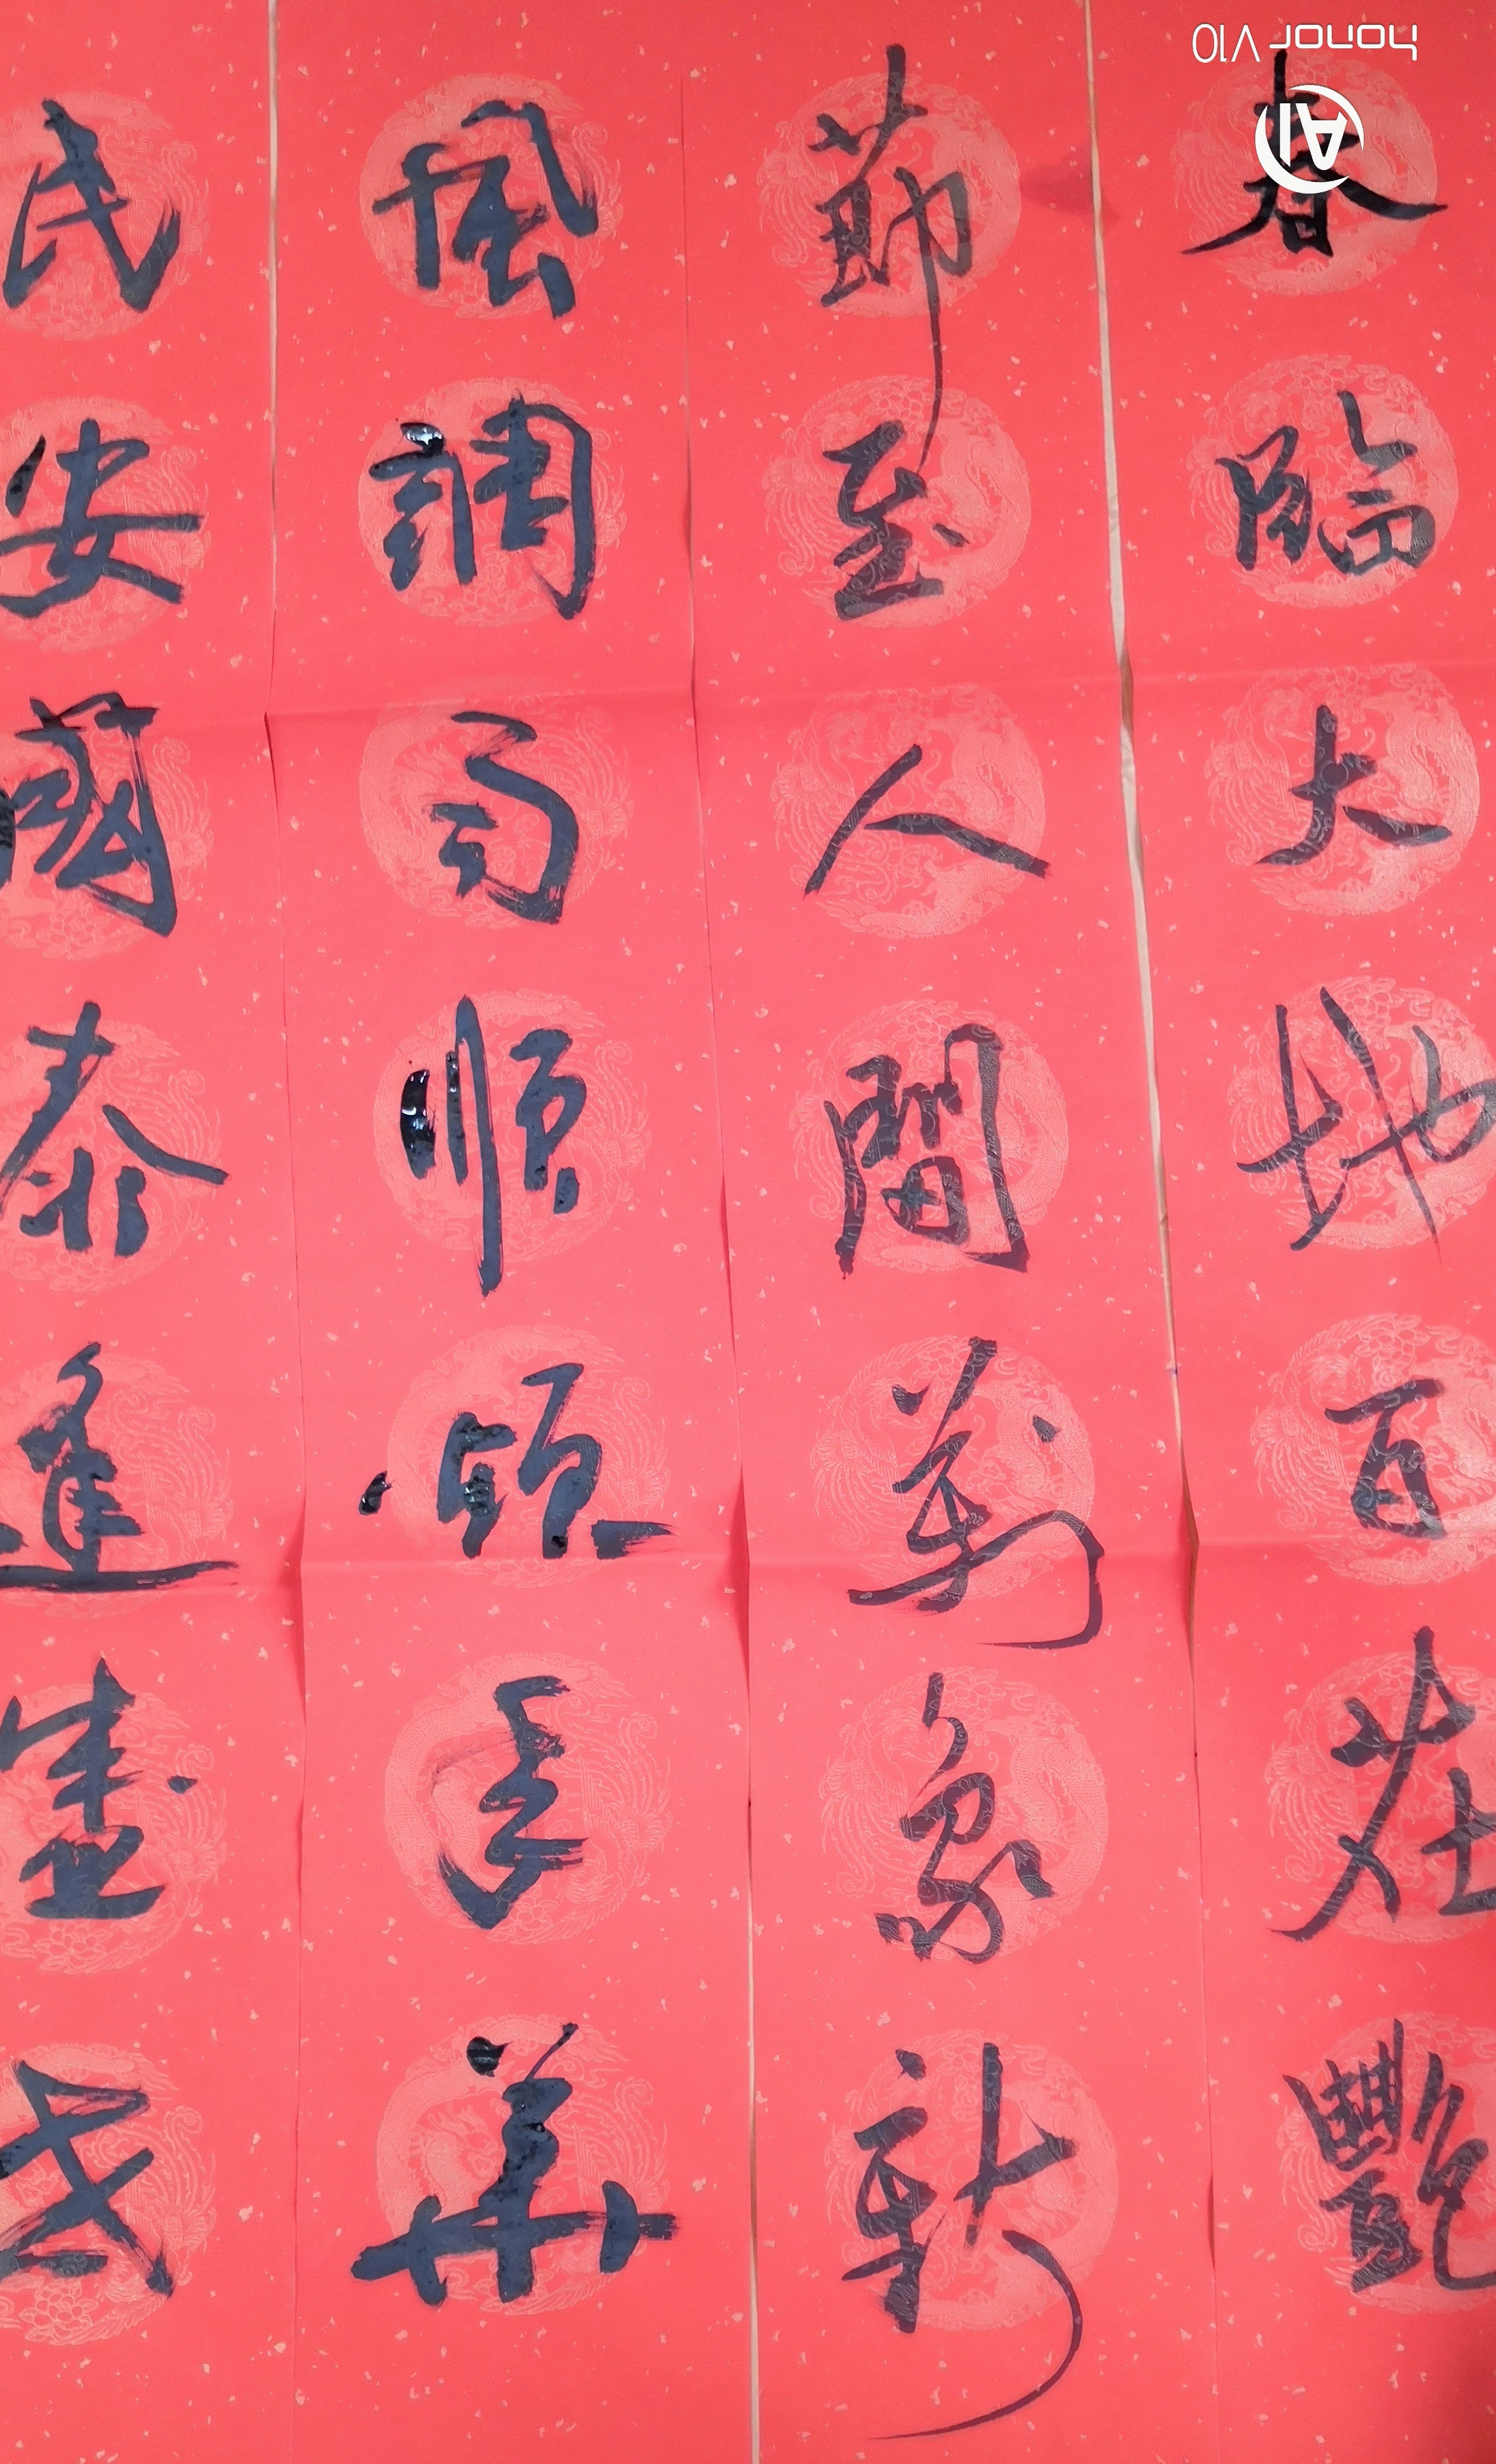 春臨大地百花艷
節至人間萬象新
風調雨順頌年華
民安國泰逢盛世
honor V10
AI